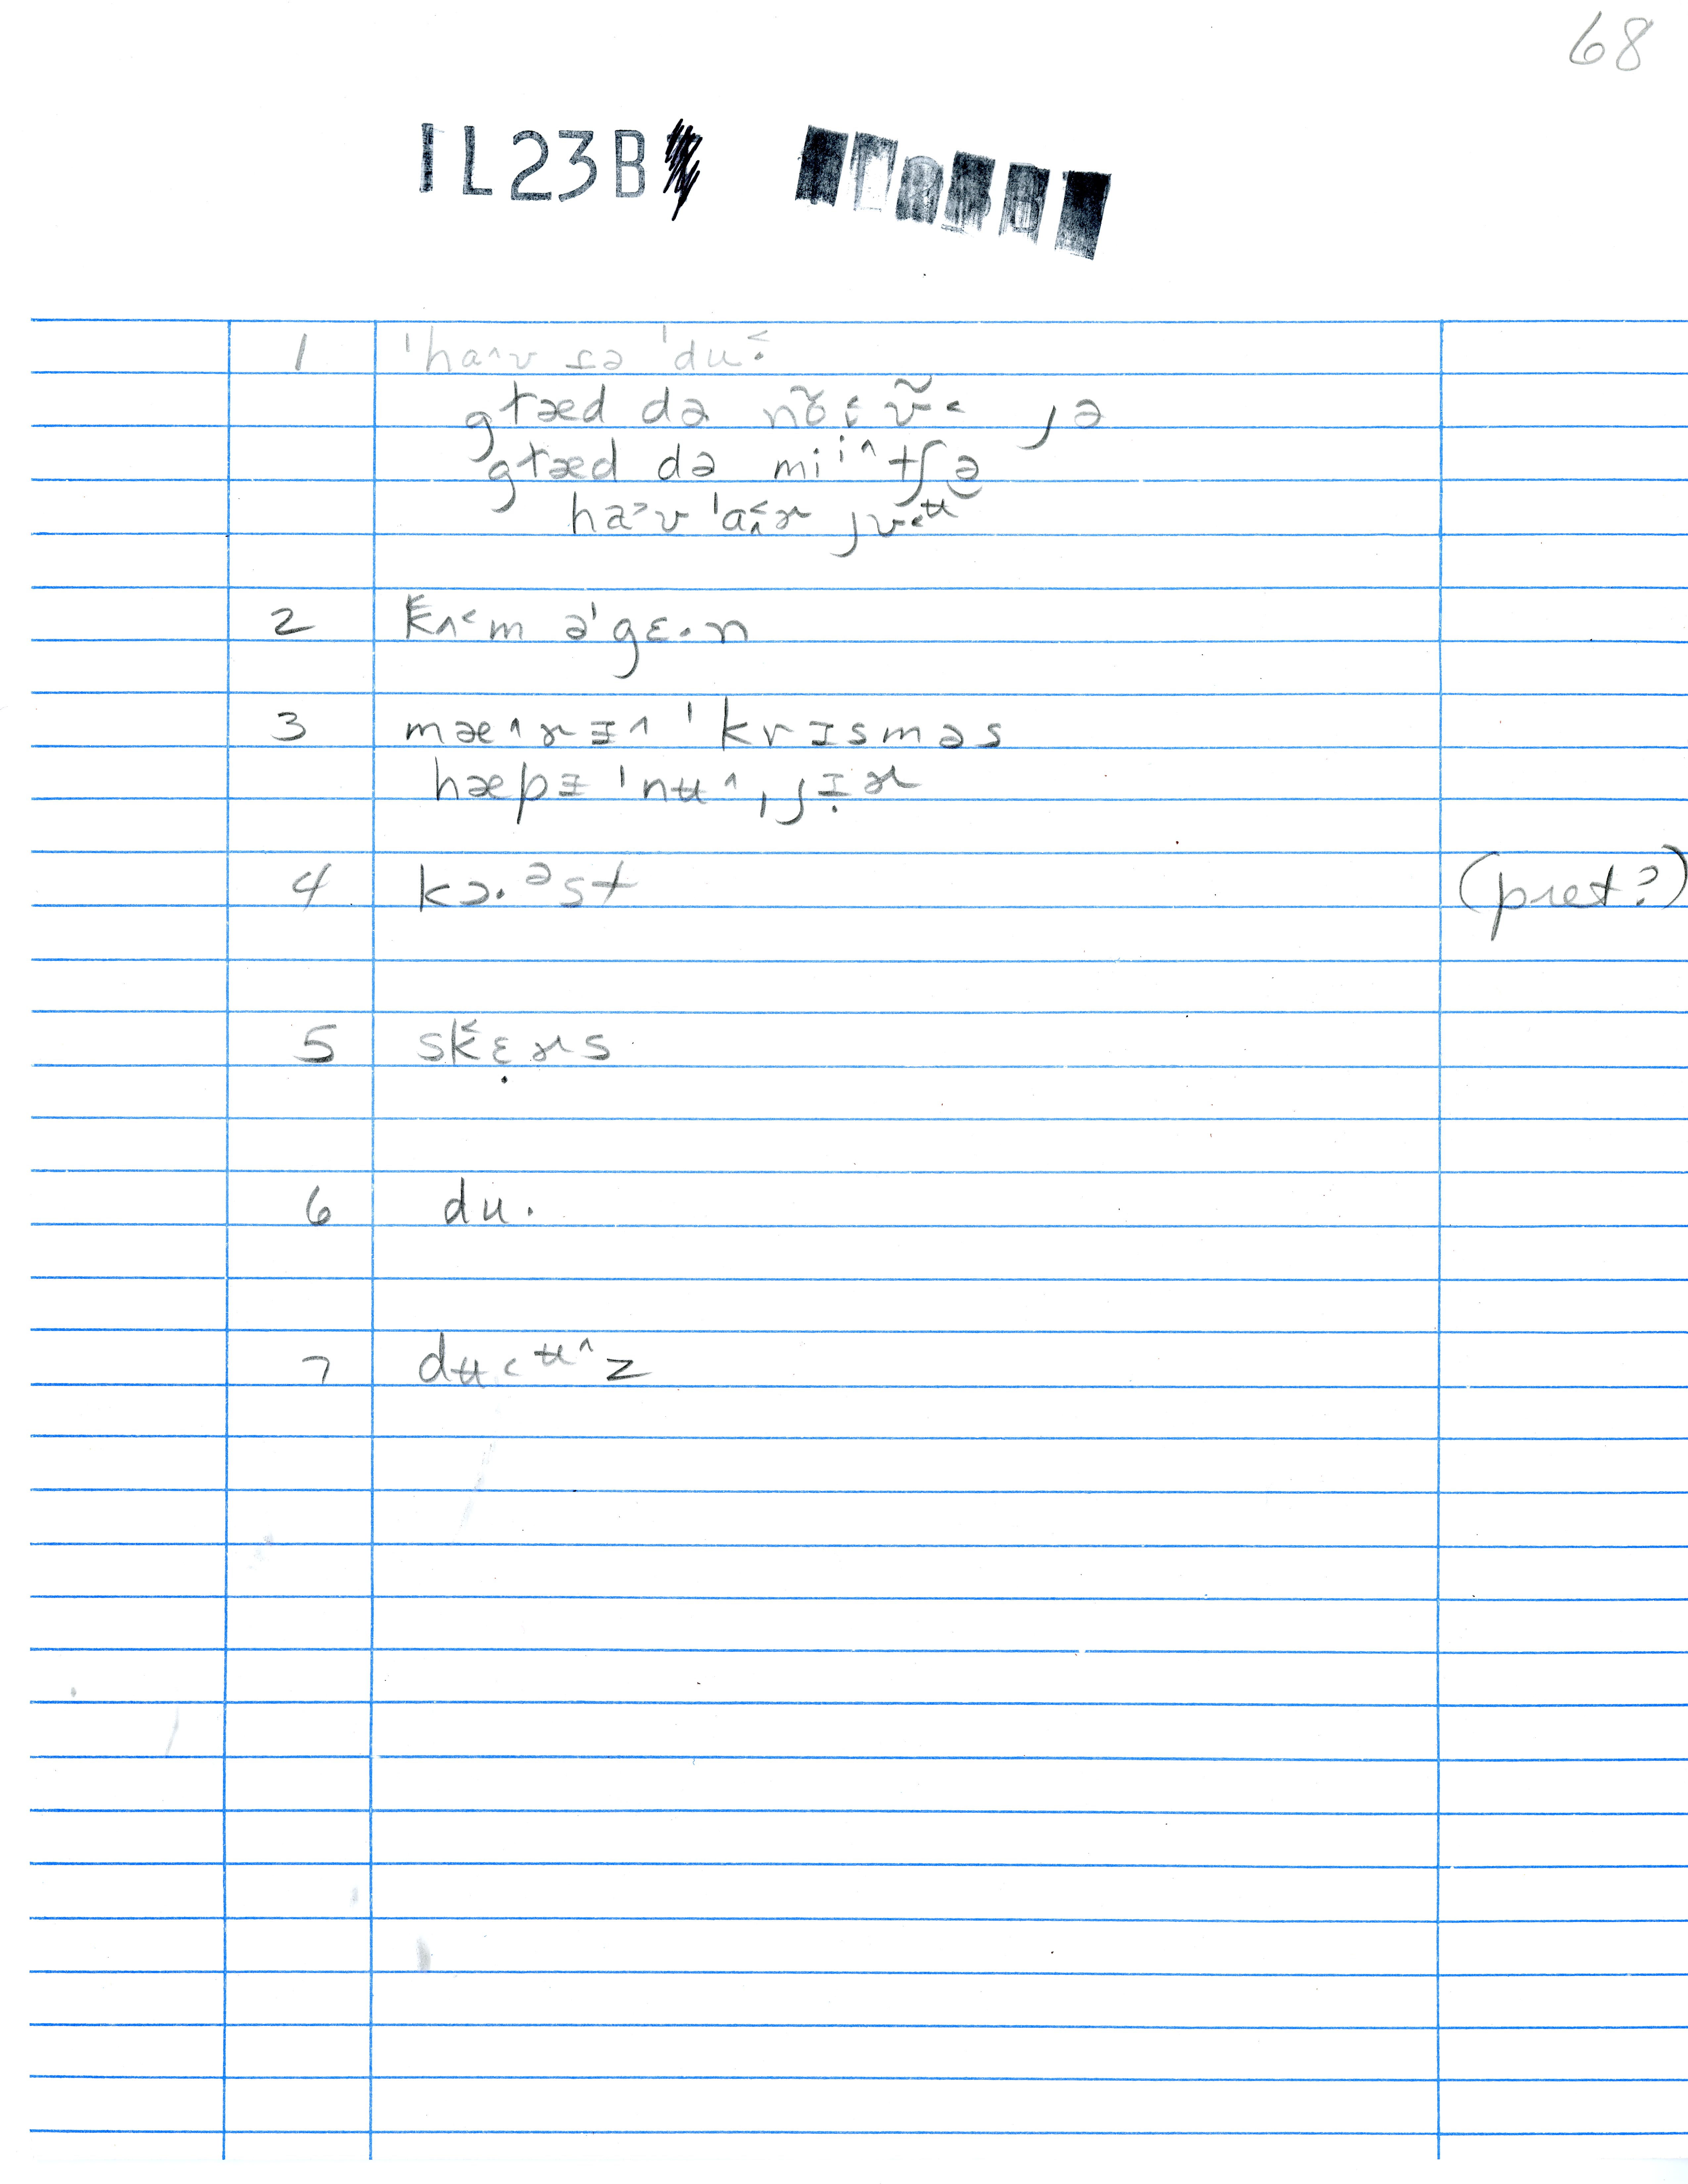 68
IL23B
1 ˈhaʌʊ ɾə ˈduˑ˂
gɫæd də nɞ̃˂ ʊ̃˂ jə
gɫæd də miiʌtʃə
ha˃ʊ ˈa˂ʌɚ jʊ˂ᵾ
2 kʌ˂m əˈgɛ·n
3 mæʌɚɪ̵ʌ ˈkrɪsməs
hæpɪ̵ ˈnʉʌˌjɪ̣ɚ
4 kɔ·ᵊst (pret?)
5 sk˂ɛ̣ɚs
6 du·
7 dʉ˂ᵾʌz